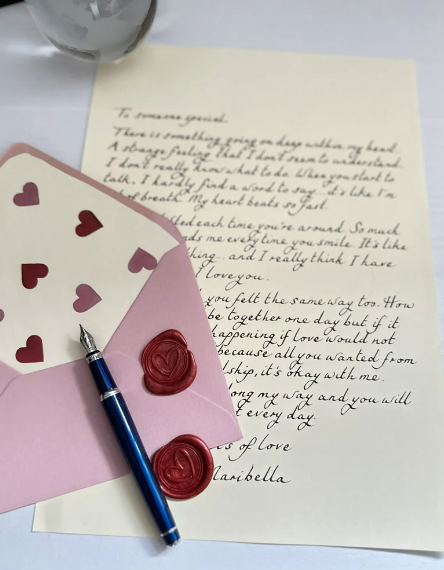 To someone special,
There is something going on deep within my head.
A strange feeling that I don't seem to understand.
I don't really know what to do. When you start to
talk, I hardly find a word to say... it's like I'm
of breath. My heart beats so fast.
each time you're around. So much
me every time you smile. It's like
and I really think I have
love you.
you felt the same way too. How
be together one day but if it
happening if love would not
because all you wanted from
it's okay with me.
my way and you will
every day.
of love
Maribella